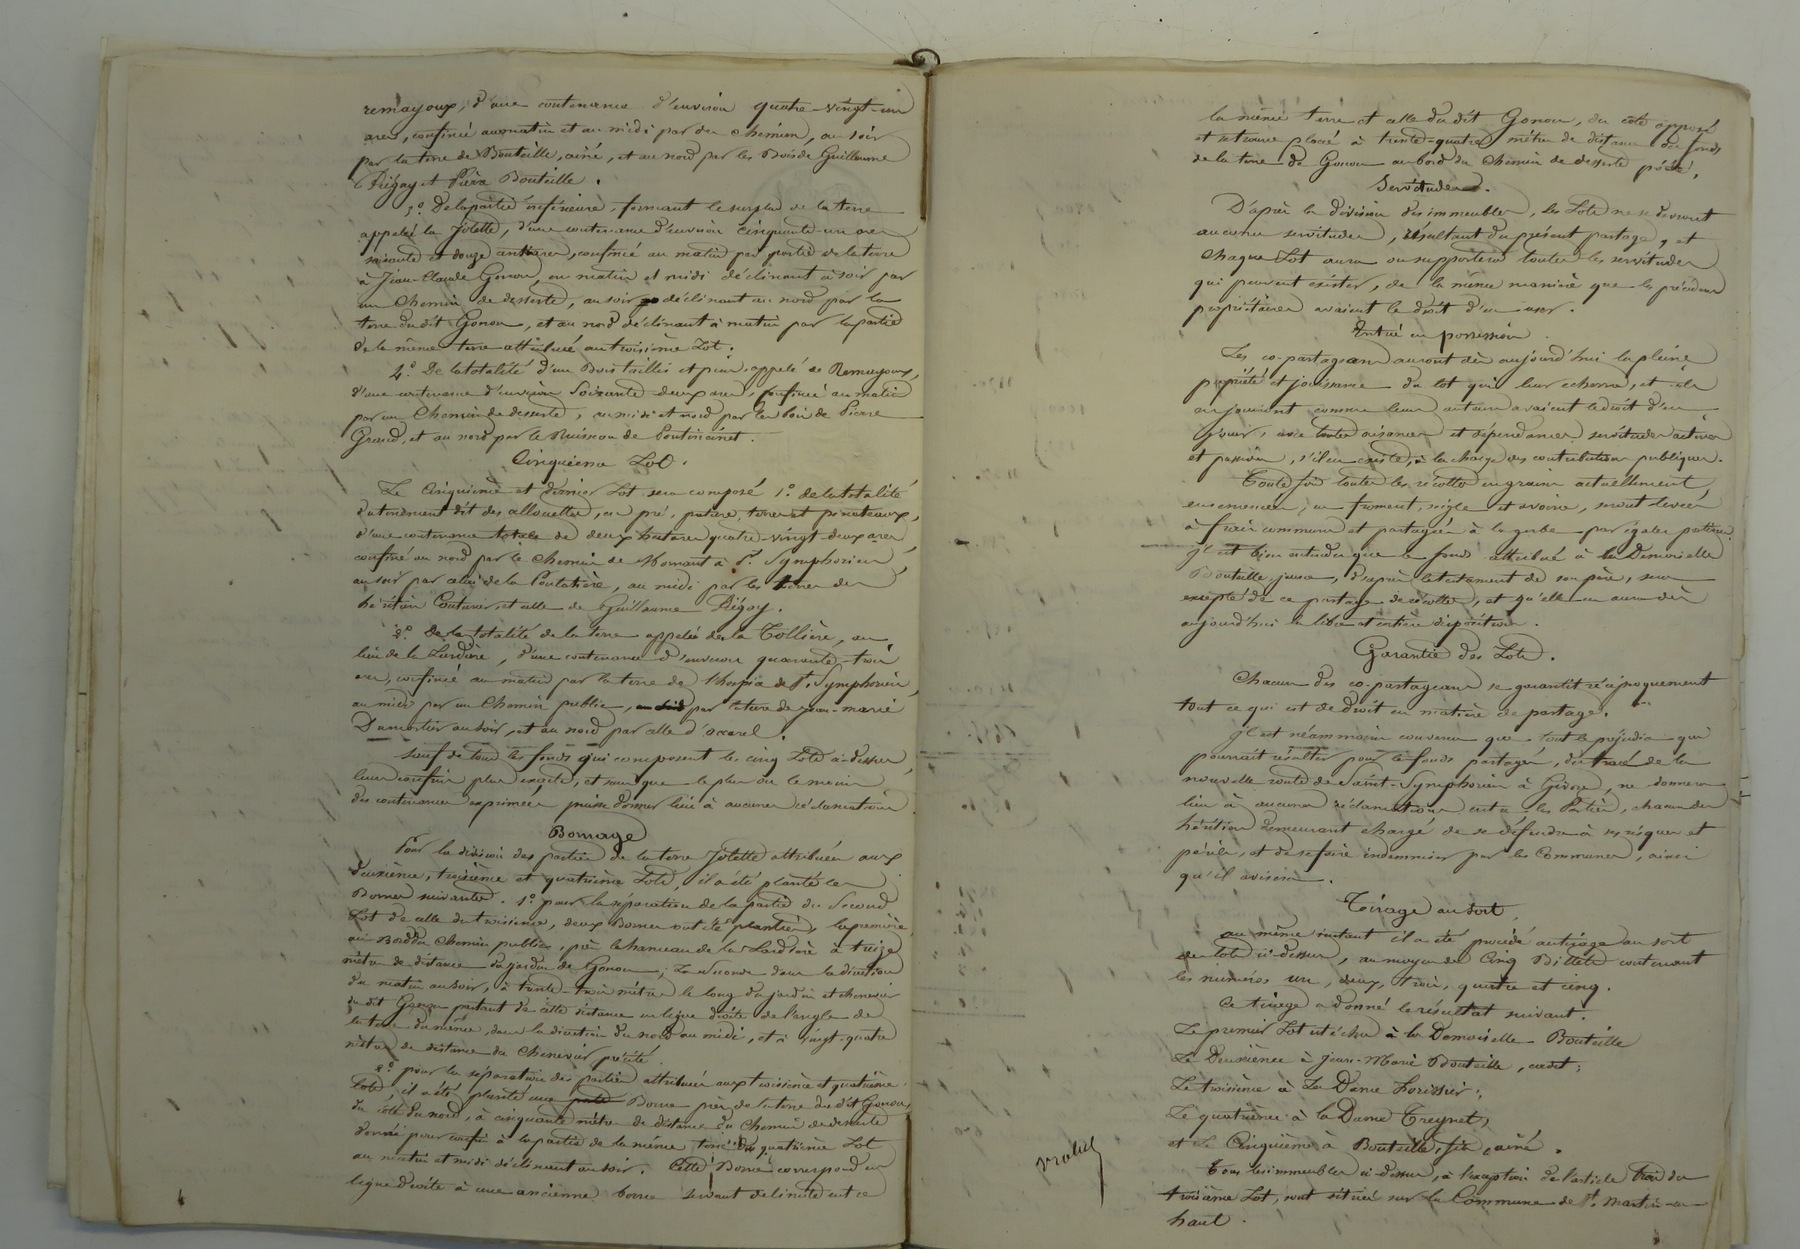 remayoux, d'une contenance d'environ quatre-vingt-un
ares, confinée au matin et au midi par des chemins, au soir
par la terre de Bouteille, ainé, et au nord par les Bois de Guillaume
Régay et Pierre Bouteille.
3º De la partie inférieure, formant le surplus de la terre
appelée la Jolette, d'une contenance d'environ cinquante-un ares
soixante et douze centiares, confinée au matin par partie de la terre
à Jean-Claude Gonon, au matin et midi déclinant à soir par
un Chemin de desserte, au soir déclinant au nord par la
terre du dit Gonon, et au nord déclinant à matin par la partie
de la même terre attribuée au troisième Lot.
4º De la totalité d'un Bois taillis et pins, appelé de Remayoux,
d'une contenance d'environ Soixante-deux ares, confinée au matin
par un Chemin de desserte, au midi et nord par les bois de Pierre
Grand, et au nord par le Ruisseau de
Cinquième Lot.
Le Cinquième et dernier Lot sera composé 1º de la totalité
du tènement dit des allouettes, en pré, pature, terres et pinateaux,
d'une contenance totale de deux hectares quatre-vingt-deux ares
confiné au nord par le Chemin de Mornant à St. Symphorien
au soir par celui de la Poulatière, au midi par les terres des
héritiers Couturier et celle de Guillaume Régay.
2º De la totalité de la terre appelée de la Tollière, au
lieu de la Lardière, d'une contenance d'environ quarante-trois
ares, confinée au matin par la terre de l'hospice de St. Symphorien,
au midi par un Chemin public, par la terre de jean-marie
Dumortier au soir, et au nord par celle d'accarel.
Sauf de tous les fonds qui composent les cinq Lots ci-dessus,
leurs confins plus exacts, et sans que le plus ou le moins
des contenances exprimées puisse donner lieu à aucunes réclamations.
Bornage
Pour la division des parties de la terre Jolette attribuées aux
deuxième, troisième et quatrième Lots, il a été planté les
Bornes suivantes. 1º pour la séparation de la partie du Second
Lot de celle du troisième, deux Bornes ont été plantées, la première
au Bord du Chemin public, près le hameau de la Lardière à treize
mètres de distance du jardin de Gonon; La Seconde dans la direction
du matin au soir, à trente-trois mètres le long du jardin et chenevier
du dit Gonon partant de cette distance en ligne droite de l'angle de
la terre du même, dans la direction du nord au midi, et à vingt-quatre
mètres de distance du Chenevier précité.
2º pour la séparation des parties attribuées aux troisième et quatrième
Lots, il a été planté une Borne près de la terre du dit Gonon,
du côté du nord, à cinquante mètres de distance du Chemin de desserte
donné pour confin à la partie de la même terre du quatrième Lot
au matin et midi déclinant au soir. Cette Borne correspond en
ligne droite à une ancienne borne servant de limite entre
la même terre et celle du dit Gonon, du côté opposé
et se trouve placée à trente-quatre mètres de distance du fonds
de la terre de Gonon au bord du chemin de desserte précité.
Servitudes.
D'après la division des immeubles, les Lots ne se devront
aucunes servitudes, résultant du présent partage, et
chaque Lot aura ou supportera toutes les servitudes
qui peuvent exister, de la même manière que les précédens
propriétaires avaient le droit d'en user.
Entrée en possession.
Les co-partageans auront dès aujourd'hui la pleine
propriété et jouissance du lot qui leur echerra, et ils
en jouiront comme leurs auteurs avaient le droit d'en
jouir, avec toutes aisances et dépendances, servitudes actives
et passives, s'il en existe, à la charge des contributions publiques.
Toutefois toutes les récoltes en grains actuellement
ensemencées, en froment, seigle et avoine, seront levées
à frais communs et partagées à la gerbe par égales portions.
il est bien entendu que le fonds attribué à la Demoiselle
Bouteille jeune, d'après le testament de son père, sera
excepté de ce partage de récoltes, et qu'elle en aura dès
aujourd'hui la libre et entière disposition.
Garantie des Lots.
Chacun des co-partageans se garantit réciproquement
tout ce qui est de droit en matière de partage.
il est néammoins convenu que tout le préjudice qui
pourrait résulter pour les fonds partagés, du tracé de la
nouvelle route de Saint-Symphorien à Givors, ne donnera
lieu à aucunes réclamations entre les Parties, chacun des
héritiers demeurant chargé de se défendre à ses risques et
périls, et de se faire indemniser par les Communes, ainsi
qu'il avisera.
Tirage au sort.
au même instant il a été procédé au tirage au sort
des lots ci-dessus, au moyen de Cinq Billets contenant
les numéros un, deux, trois, quatre et cinq.
Ce tirage a donné le résultat suivant.
Le premier Lot est échu à la Demoiselle Bouteille
Le Deuxième à Jean-Marie Bouteille, cadet;
Le troisième à La Dame
Le quatrième à la Dame Creynet,
et Le Cinquième à Bouteille, fils ainé.
Tous les immeubles ci-dessus, à l'exception de l'article trois du
troisième Lot, sont situés sur la Commune de St. Martin-en-
haut.